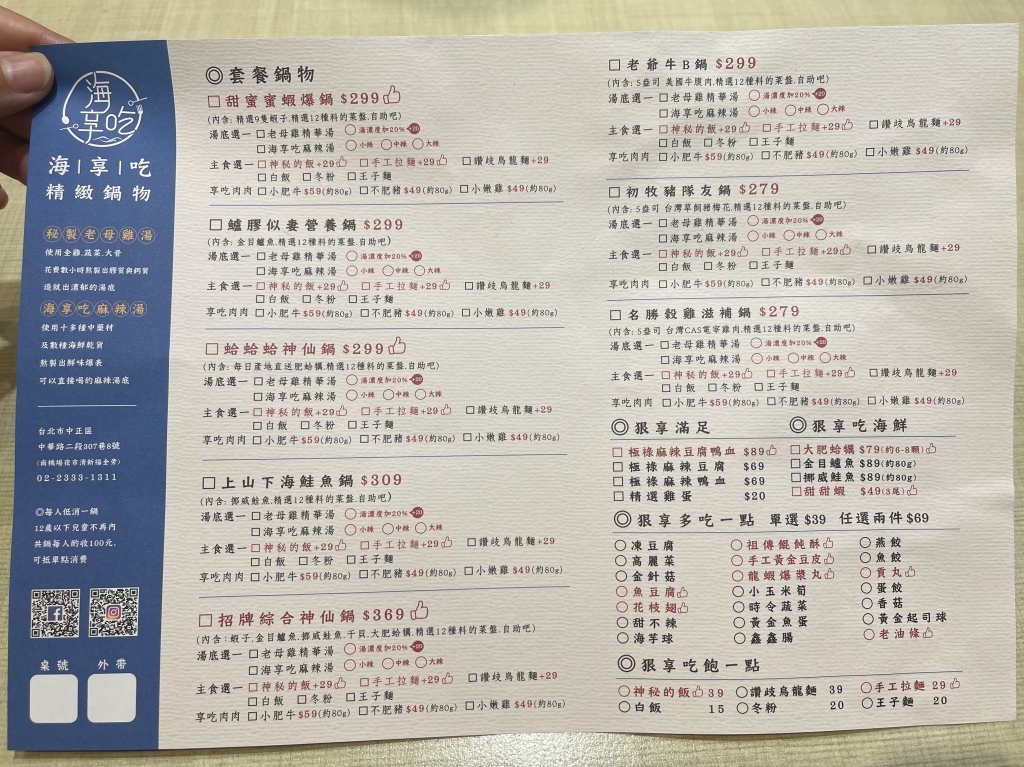 海
享吃
海|享|吃
精緻鍋物
秘製老母雞湯
使用全雞.蔬菜.大骨
花費數小時熬製出膠質與鈣質
造就出濃郁的湯底
海享吃麻辣湯
使用十多種中藥材
及數種海鮮乾貨
熬製出鮮味爆表
可以直接喝的麻辣湯底
台北市中正區
中華路二段307巷8號
(南機場夜市清新福全旁)
02-2333-1311
◎每人低消一鍋
12歲以下兒童不再內
共鍋每人酌收100元,
可抵單點消費
桌號 外帶
◎套餐鍋物
□甜蜜蜜蝦爆鍋 $299
(內含:精選9隻蝦子.精選12種料的菜盤.自助吧)
湯底選一 □老母雞精華湯 ○湯濃度加20% +20
□海享吃麻辣湯 ○小辣 ○中辣 ○大辣
主食選一 □神秘的飯+29 □手工拉麵+29 □讚歧烏龍麵+29
□白飯 □冬粉 □王子麵
享吃肉肉 □小肥牛$59(約80g) □不肥豬$49(約80g) □小嫩雞$49(約80g)
□鱸膠似妻營養鍋 $299
(內含:金目鱸魚.精選12種料的菜盤.自助吧)
湯底選一 □老母雞精華湯 ○湯濃度加20% +20
□海享吃麻辣湯 ○小辣 ○中辣 ○大辣
主食選一 □神秘的飯+29 □手工拉麵+29 □讚歧烏龍麵+29
□白飯 □冬粉 □王子麵
享吃肉肉 □小肥牛$59(約80g) □不肥豬$49(約80g) □小嫩雞$49(約80g)
□蛤蛤蛤神仙鍋 $299
(內含:每日產地直送肥蛤蠣.精選12種料的菜盤.自助吧)
湯底選一 □老母雞精華湯 ○湯濃度加20% +20
□海享吃麻辣湯 ○小辣 ○中辣 ○大辣
主食選一 □神秘的飯+29 □手工拉麵+29 □讚歧烏龍麵+29
□白飯 □冬粉 □王子麵
享吃肉肉 □小肥牛$59(約80g) □不肥豬$49(約80g) □小嫩雞$49(約80g)
□上山下海鮭魚鍋 $309
(內含:挪威鮭魚.精選12種料的菜盤.自助吧)
湯底選一 □老母雞精華湯 ○湯濃度加20% +20
□海享吃麻辣湯 ○小辣 ○中辣 ○大辣
主食選一 □神秘的飯+29 □手工拉麵+29 □讚歧烏龍麵+29
□白飯 □冬粉 □王子麵
享吃肉肉 □小肥牛$59(約80g) □不肥豬$49(約80g) □小嫩雞$49(約80g)
□招牌綜合神仙鍋 $369
(內含:蝦子.金目鱸魚.挪威鮭魚.干貝.大肥蛤蠣.精選12種料的菜盤.自助吧)
湯底選一 □老母雞精華湯 ○湯濃度加20% +20
□海享吃麻辣湯 ○小辣 ○中辣 ○大辣
主食選一 □神秘的飯+29 □手工拉麵+29 □讚歧烏龍麵+29
□白飯 □冬粉 □王子麵
享吃肉肉 □小肥牛$59(約80g) □不肥豬$49(約80g) □小嫩雞$49(約80g)
□老爺牛B鍋 $299
(內含:5盎司 美國牛腹肉.精選12種料的菜盤.自助吧)
湯底選一 □老母雞精華湯 ○湯濃度加20% +20
□海享吃麻辣湯 ○小辣 ○中辣 ○大辣
主食選一 □神秘的飯+29 □手工拉麵+29 □讚歧烏龍麵+29
□白飯 □冬粉 □王子麵
享吃肉肉 □小肥牛$59(約80g) □不肥豬$49(約80g) □小嫩雞$49(約80g)
□初牧豬隊友鍋 $279
(內含:5盎司 台灣草飼豬梅花.精選12種料的菜盤.自助吧)
湯底選一 □老母雞精華湯 ○湯濃度加20% +20
□海享吃麻辣湯 ○小辣 ○中辣 ○大辣
主食選一 □神秘的飯+29 □手工拉麵+29 □讚歧烏龍麵+29
□白飯 □冬粉 □王子麵
享吃肉肉 □小肥牛$59(約80g) □不肥豬$49(約80g) □小嫩雞$49(約80g)
□名勝穀雞滋補鍋 $279
(內含:5盎司 台灣CAS電宰雞肉.精選12種料的菜盤.自助吧)
湯底選一 □老母雞精華湯 ○湯濃度加20% +20
□海享吃麻辣湯 ○小辣 ○中辣 ○大辣
主食選一 □神秘的飯+29 □手工拉麵+29 □讚歧烏龍麵+29
□白飯 □冬粉 □王子麵
享吃肉肉 □小肥牛$59(約80g) □不肥豬$49(約80g) □小嫩雞$49(約80g)
◎狠享滿足
□極祿麻辣豆腐鴨血 $89
□極祿麻辣豆腐 $69
□極祿麻辣鴨血 $69
□精選雞蛋 $20
◎狠享吃海鮮
□大肥蛤蠣 $79(約6-8顆)
□金目鱸魚 $89(約80g)
□挪威鮭魚 $89(約80g)
□甜甜蝦 $49(3尾)
◎狠享多吃一點 單選$39 任選兩件$69
○凍豆腐 ○祖傳餛飩酥 ○燕餃
○高麗菜 ○手工黃金豆皮 ○魚餃
○金針菇 ○龍蝦爆漿丸 ○貢丸
○魚豆腐 ○小玉米筍 ○蛋餃
○花枝翅 ○時令蔬菜 ○香菇
○甜不辣 ○黃金魚蛋 ○黃金起司球
○海芋球 ○鑫鑫腸 ○老油條
◎狠享吃飽一點
○神秘的飯 39 ○讚歧烏龍麵 39 ○手工拉麵 29
○白飯 15 ○冬粉 20 ○王子麵 20